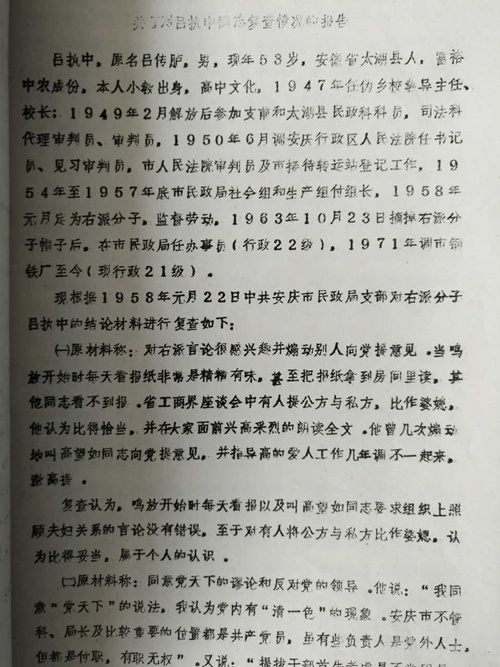 吕执中，原名吕传胪，男，现年５３岁，安徽省太湖县人，富裕
中农成份，本人小教出身，高中文化，１９４７年任伪乡校教导主任、
校长；１９４９年２月解放后参加支前和太湖县民政科科员，司法科
代理审判员、审判员，１９５０年６月调安庆行政区人民法院任书记
员、见习审判员，市人民法院审判员及市接待转运站登记工作，１９
５４年至１９５７年底市民政局社会组和生产组付组长，１９５８年
元月定为右派分子，监督劳动，１９６３年１０月２３日摘掉右派分
子帽子后，在市民政局任办事员（行政２２级），１９７１年调市钢
铁厂至今（现行政２１级）。
现根据１９５８年元月２２日中共安庆市民政局支部对右派分子
吕执中的结论材料进行复查如下：
㈠原材料称：对右派言论很感兴趣并煽动别人向党提意见。当鸣
放开始时每天看报纸非常是精精有味，甚至把报纸拿到房间里读，其
他同志看不到报。省工商界座谈会中有人提公方与私方，比作婆媳，
他认为比得恰当，并在大家面前兴高采烈的朗读全文。他曾几次煽动
地叫高望如同志向党提意见，并指导高的爱人工作几年调不一起来，
激高提。
复查认为，鸣放开始时每天看报以及叫高望如同志要求组织上照
顾夫妇关系的言论没有错误，至于对有人将公方与私方比作婆媳，认
为比得妥当，属于个人的认识。
㈡原材料称：同意党天下的谬论和反对党的领导。他说：“我同
意“党天下”的说法，我认为党内有“清一色”的现象。安庆市不管
科、局长及比较重要的位置都是共产党员，虽有些负责人是党外人士，
但都是付职，有职无权”。又说：“提拔干部首先